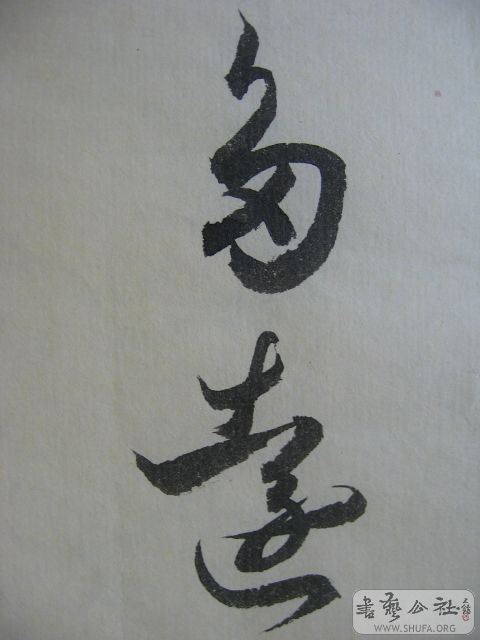 多
遠
書藝公社
WWW.SHUFA.ORG